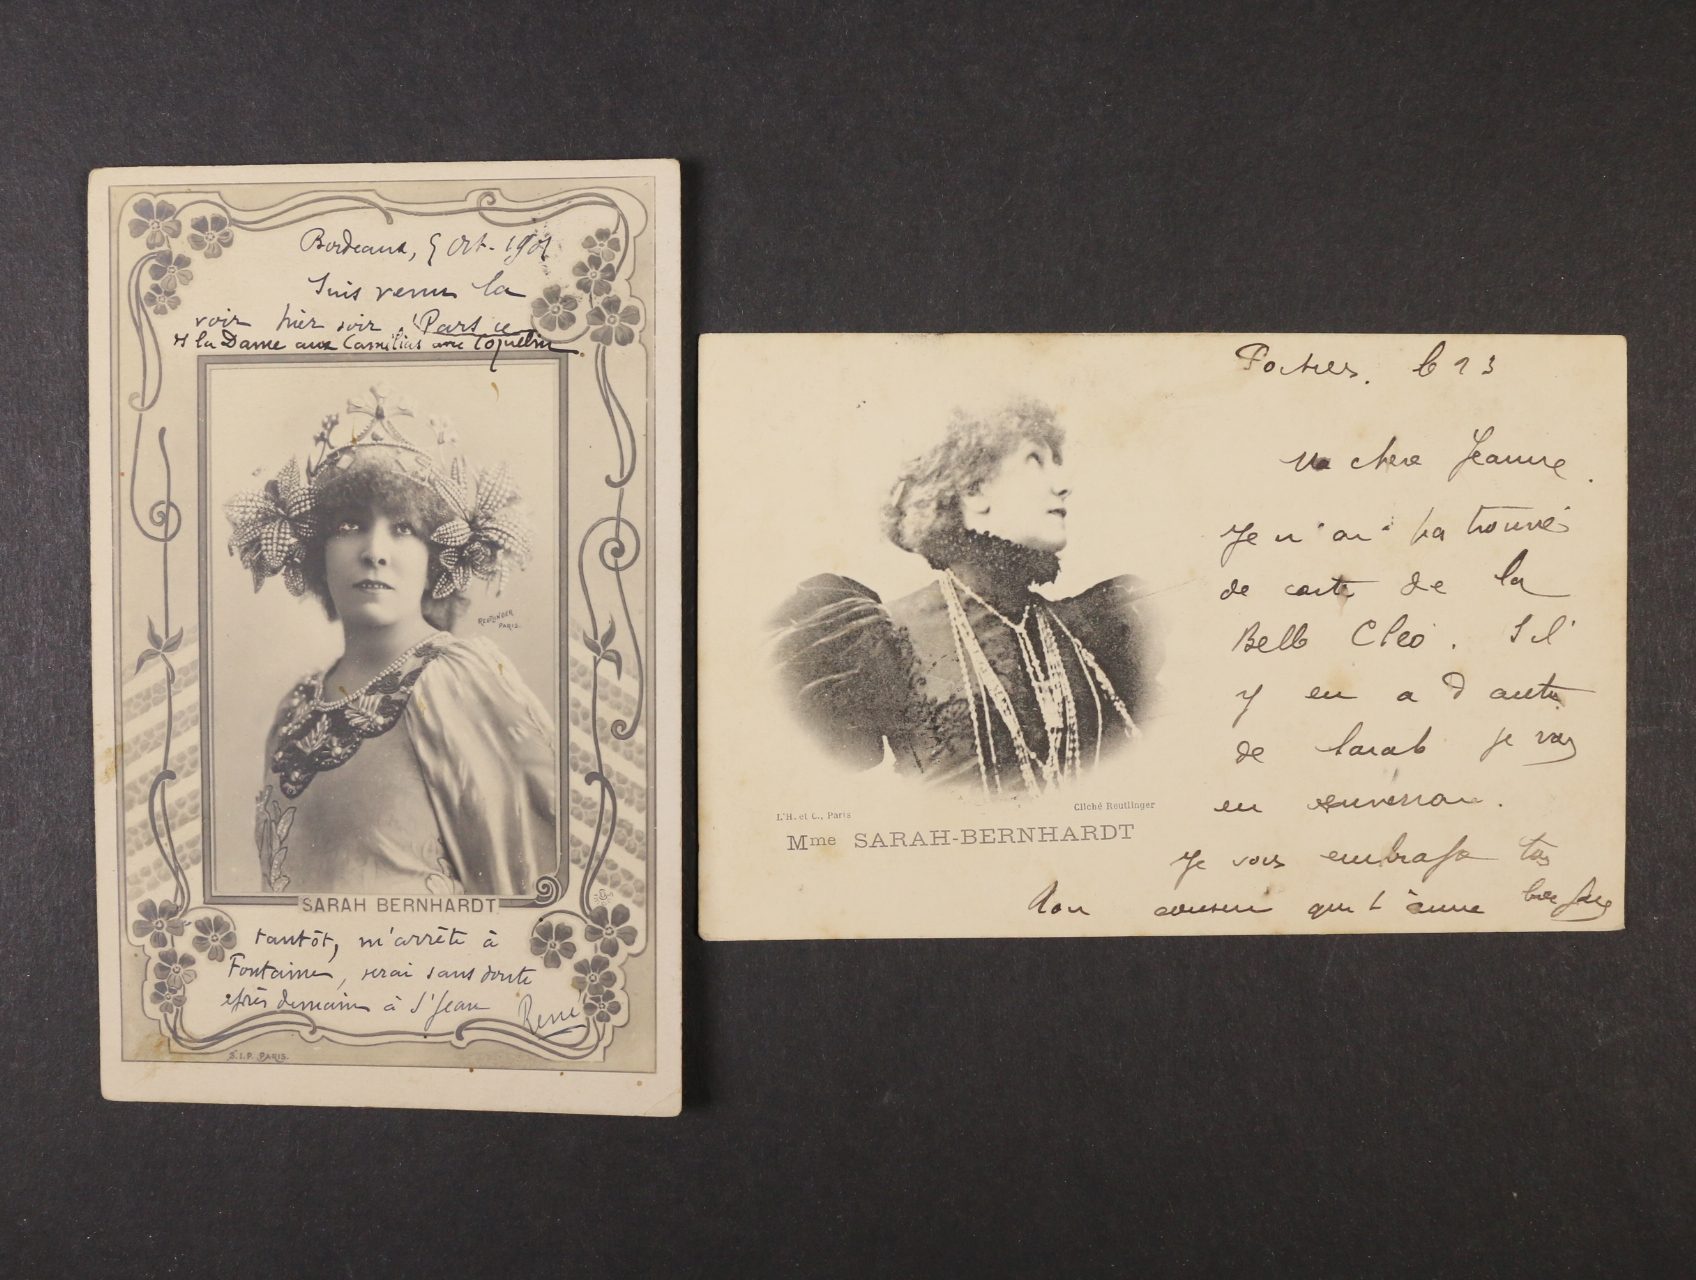 Bordeaux, 5 Oct. 1901
Suis venu la
voir hier soir. Pars ce
et la Dame aux Camélias avec Coquelin
REUTLINGER
PARIS.
SARAH BERNHARDT
tantôt, m'arrête à
Fontaine, serai sans doute
après demain à St Jean
René
S.I.P. PARIS.
le 13
Ma chère Jeanne.
Je n'ai pas trouvé
de carte de la
Belle Cléo. S'il
y en a d'autre
de Sarah je vais
en
Je vous embrasse
Mon cousin qui t'aime
L'H. et C., Paris
Cliché Reutlinger
Mme SARAH-BERNHARDT